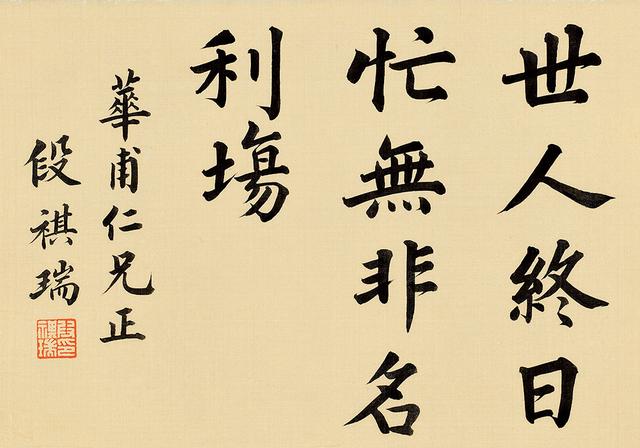 世人終日
忙無非名
利塲
華甫仁兄正
段祺瑞